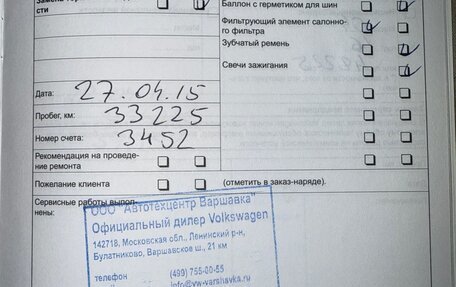 сти
Баллон с герметиком для шин
Фильтрующий элемент салонно-
го фильтра
Зубчатый ремень
Свечи зажигания
Дата: 27.04.15
Пробег, км: 33225
Номер счета: 3452
Рекомендация на проведе-
ние ремонта
Пожелание клиента (отметить в заказ-наряде).
Сервисные работы выпол-
нены:
ООО "Автотехцентр Варшавка"
Официальный дилер Volkswagen
142718, Московская обл., Ленинский р-н,
Булатниково, Варшавское ш., 21 км
телефон (499) 755-00-55
info@vw-varshavka.ru